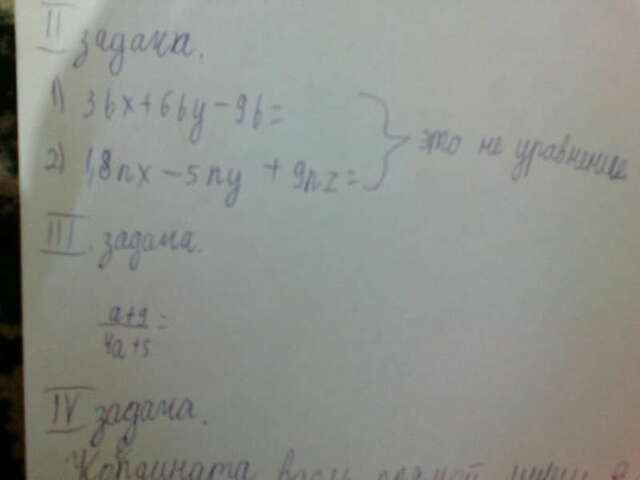 II задача.
1) 3bx+6by-9b=
2) 1,8nx-5ny+9nz=
} это не уравнение
III задача.
a+9
4a+5 =
IV задача.
Координата вдоль прямой линии в